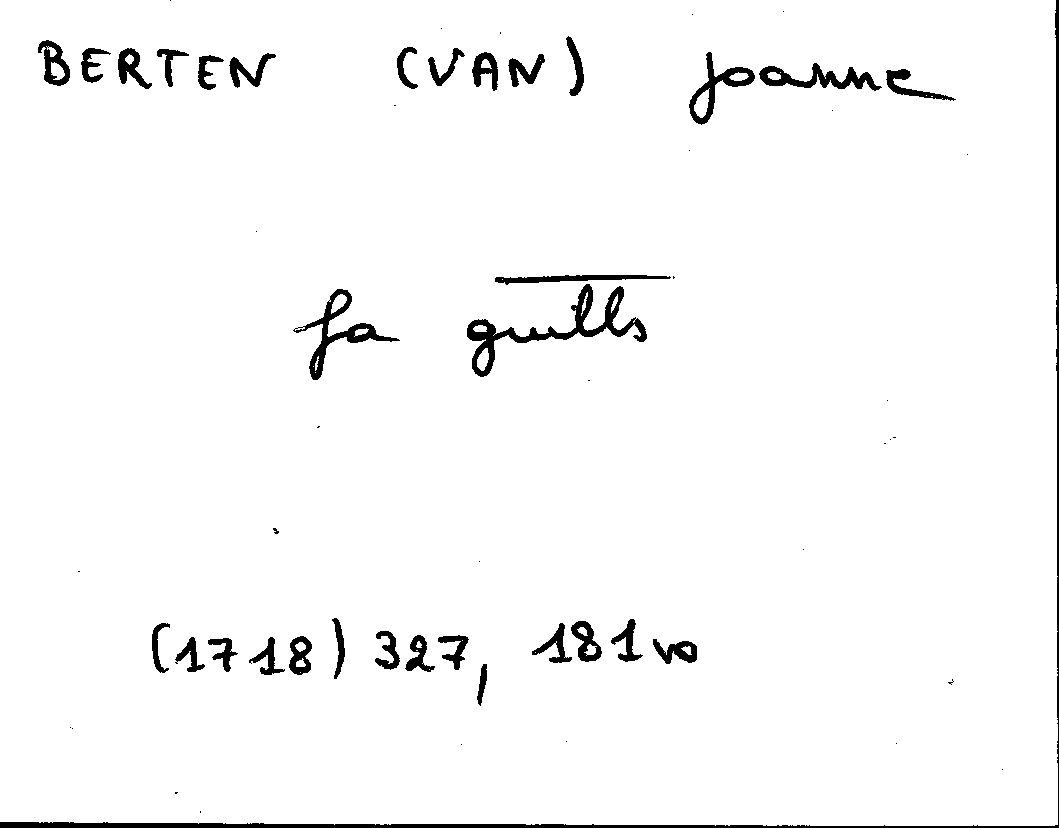 BERTEN (VAN) Joanne
fa guills
(1718) 327, 181vo